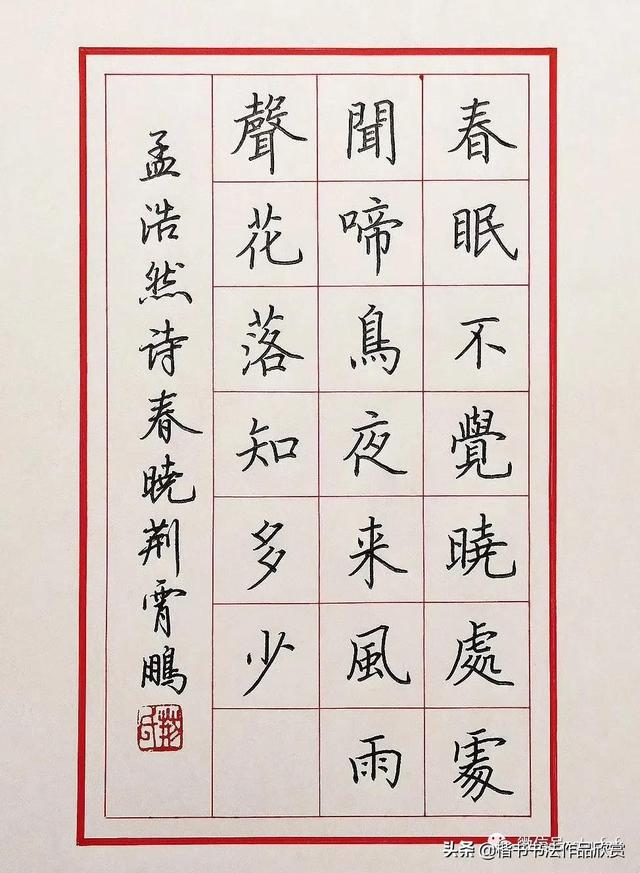 春眠不覺曉處處
聞啼鳥夜来風雨
聲花落知多少
孟浩然诗春曉荆霄鵬
微信号
头条 @楷书书法作品欣赏